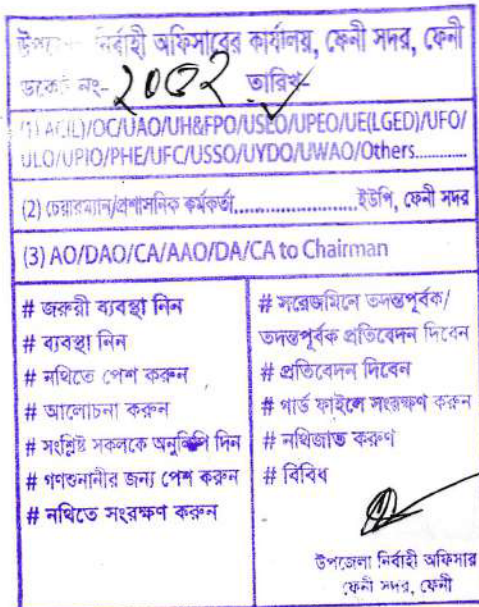 উপজেলা নির্বাহী অফিসারের কার্যালয়, ফেনী সদর, ফেনী
ডকেট নং- ২০৫২ তারিখ-
(1) AC(L)/OC/UAO/UH&FPO/USEO/UPEO/UE(LGED)/UFO/
ULO/UPIO/PHE/UFC/USSO/UYDO/UWAO/Others.............
(2) চেয়ারম্যান/প্রশাসনিক কর্মকর্তা........................ইউপি, ফেনী সদর
(3) AO/DAO/CA/AAO/DA/CA to Chairman
# জরুরী ব্যবস্থা নিন
# ব্যবস্থা নিন
# নথিতে পেশ করুন
# আলোচনা করুন
# সংশ্লিষ্ট সকলকে অনুলিপি দিন
# গণশুনানীর জন্য পেশ করুন
# নথিতে সংরক্ষণ করুন
# সরেজমিনে তদন্তপূর্বক/
তদন্তপূর্বক প্রতিবেদন দিবেন
# প্রতিবেদন দিবেন
# গার্ড ফাইলে সংরক্ষণ করুন
# নথিজাত করুণ
# বিবিধ
উপজেলা নির্বাহী অফিসার
ফেনী সদর, ফেনী